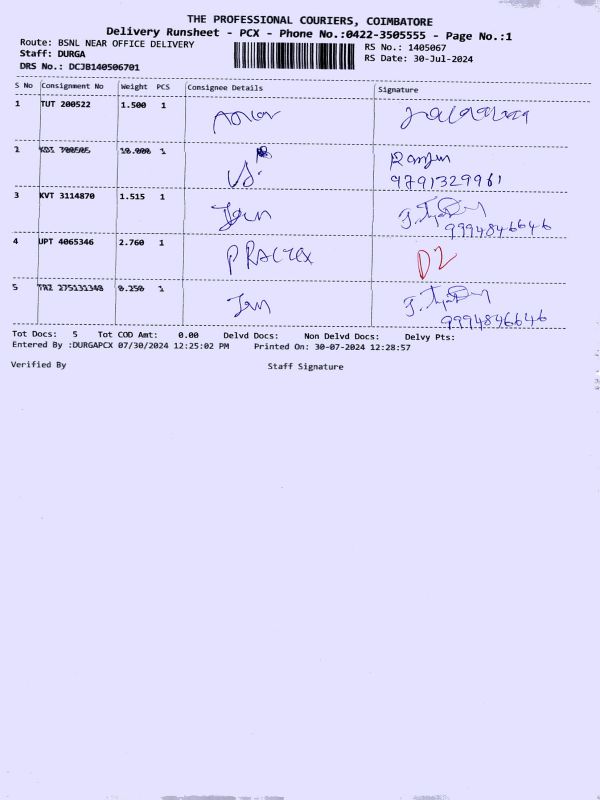 THE PROFESSIONAL COURIERS, COIMBATORE
Delivery Runsheet - PCX - Phone No.:0422-3505555 - Page No.:1
Route: BSNL NEAR OFFICE DELIVERY
RS No.: 1405067
Staff: DURGA
RS Date: 30-Jul-2024
DRS No.: DCJB140506701
S No Consignment No Weight PCS Consignee Details Signature
1 TUT 200522 1.500 1
2 1 Ranjen
9791329961
3 KVT 3114870 1.515 1
9994846646
4 UPT 4065346 2.760 1 D2
5 TRZ 275131348 0.250 1
9994846646
Tot Docs: 5 Tot COD Amt: 0.00 Delvd Docs: Non Delvd Docs: Delvy Pts:
Entered By :DURGAPCX 07/30/2024 12:25:02 PM Printed On: 30-07-2024 12:28:57
Verified By Staff Signature